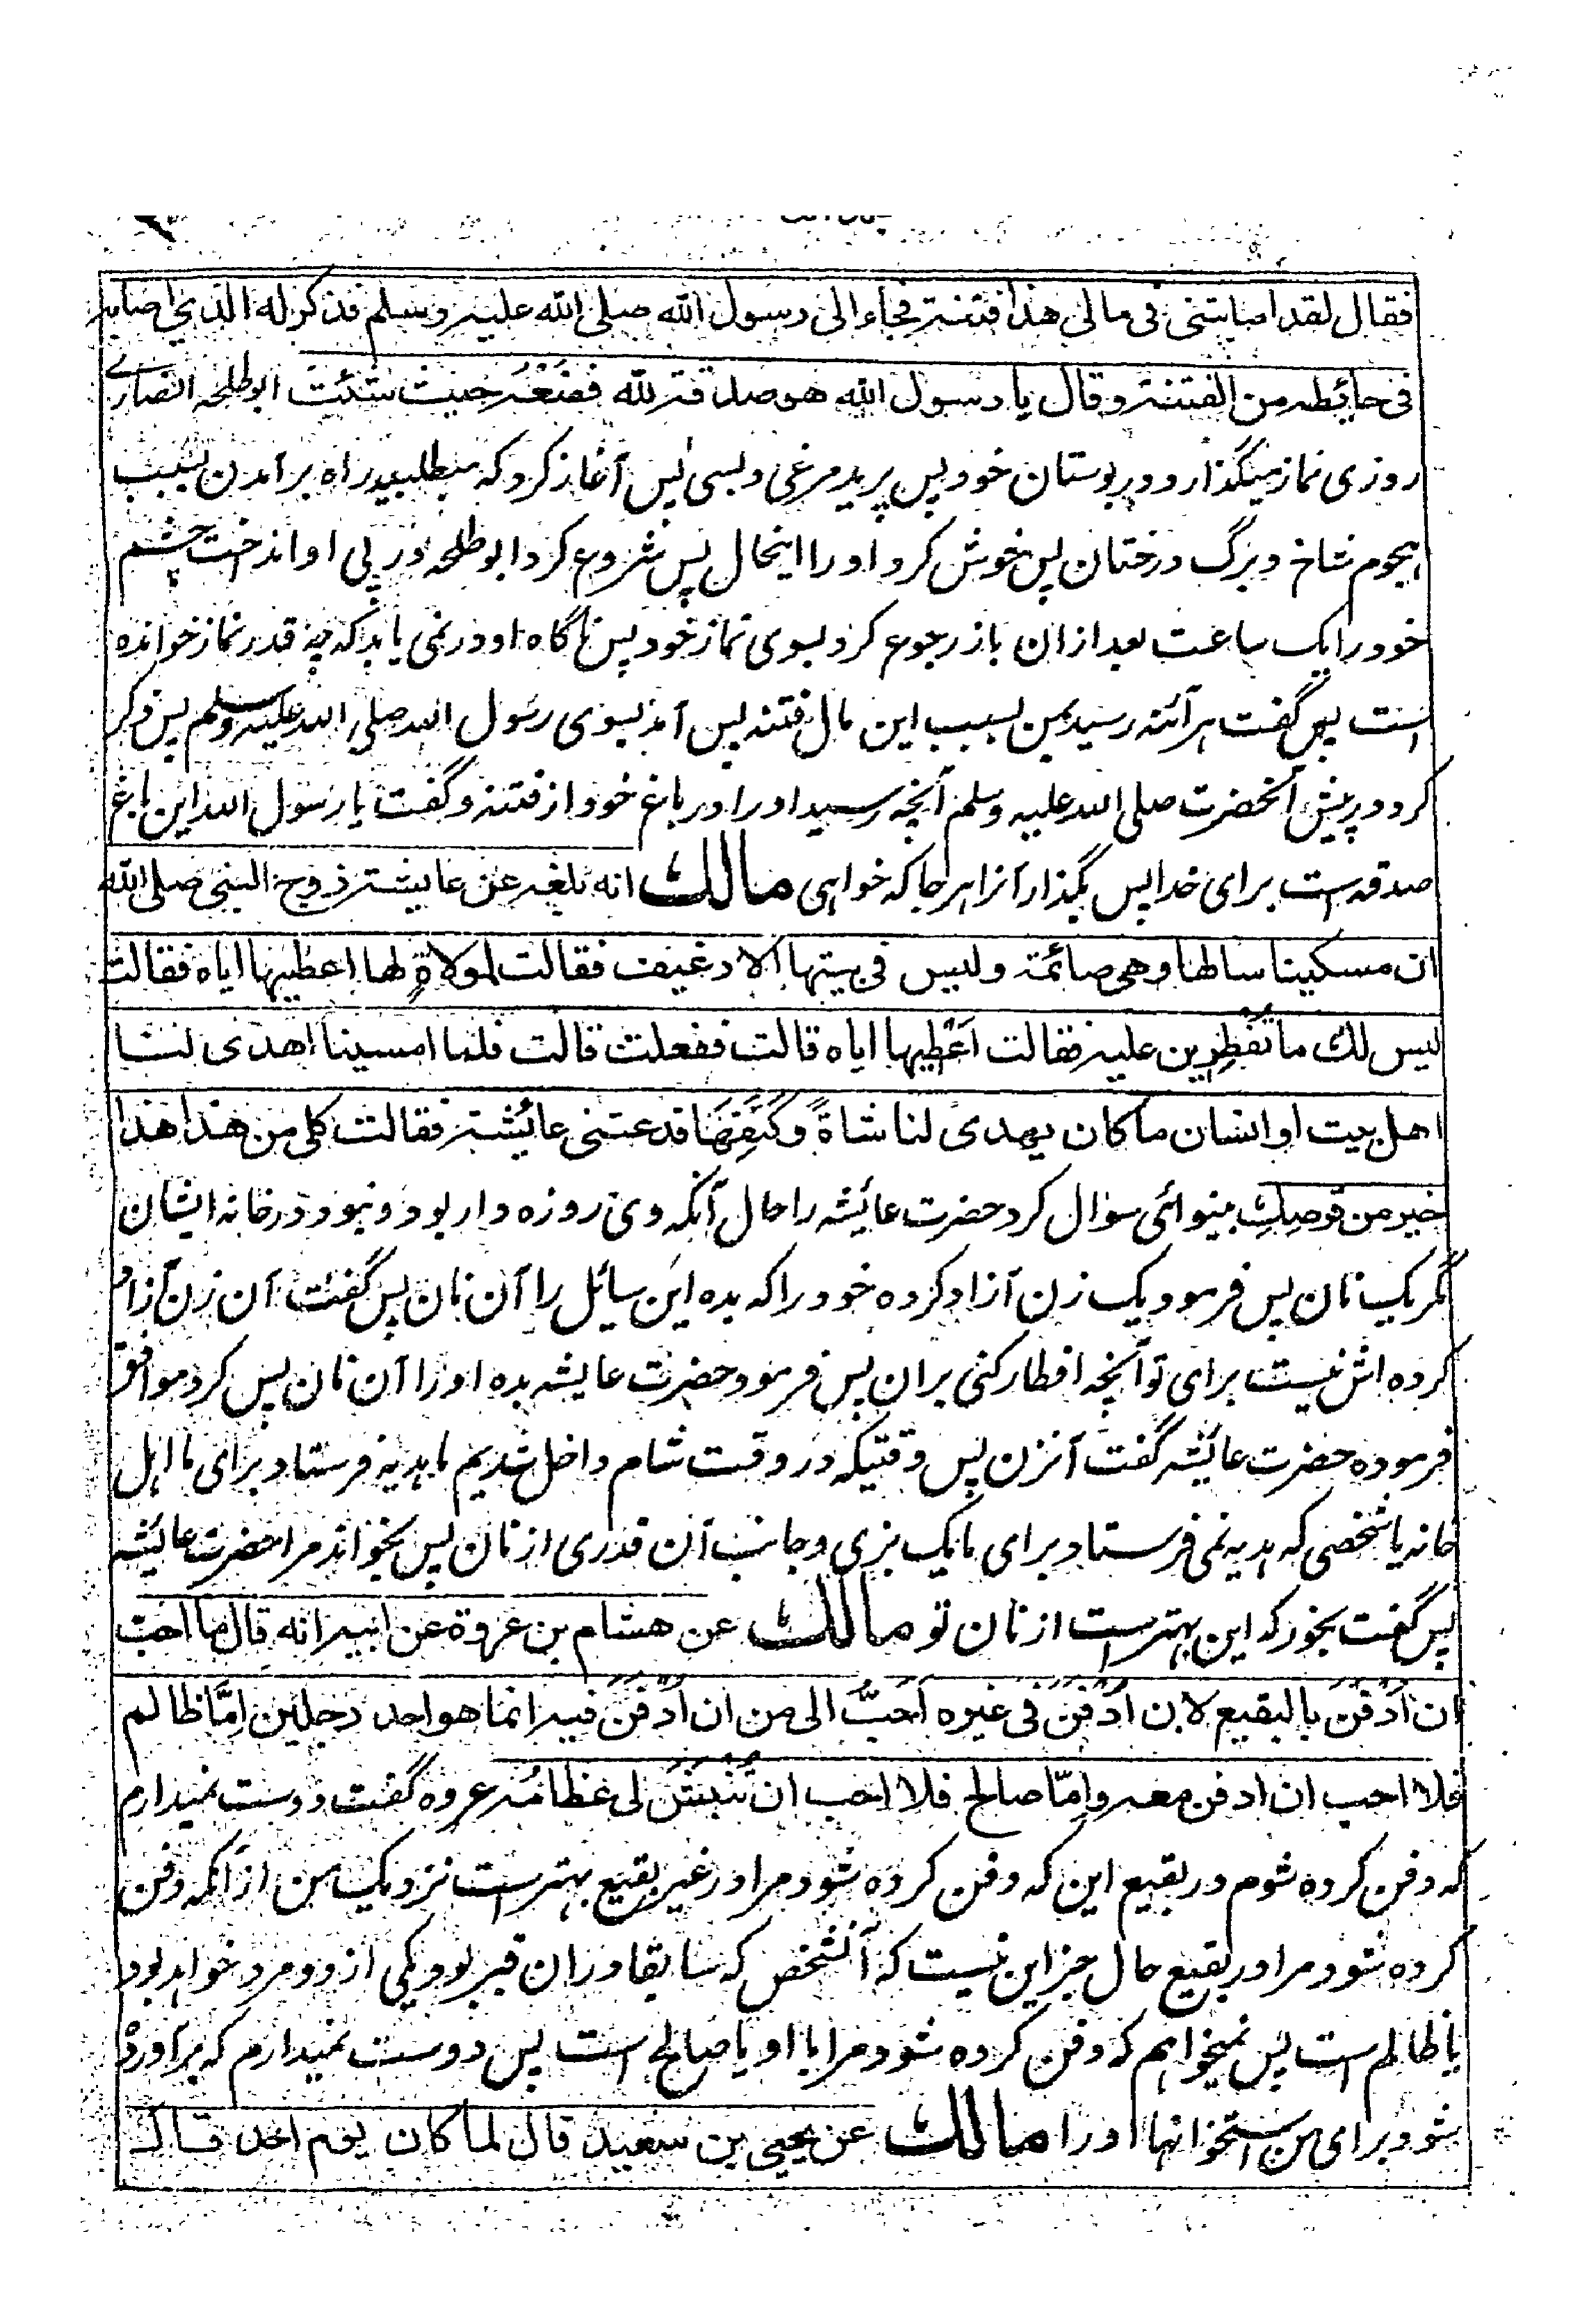 فقال لقد اصابتنی فی مالی هذا فتنة فجاء الی رسول الله صلی الله علیه وسلم فذکر له الذی اصابه
فی حائطه من الفتنة وقال یا رسول الله هو صدقة لله فضعه حیث شئت ابوطلحه انصارے
روزی نماز میگذارد در بوستان خود پس پرید مرغی دبسی پس آغاز کرد که میطلبید راه برآمدن بسبب
هجوم شاخ و برگ درختان پس خوش کرد او را اینحال پس شروع کرد ابوطلحه در پی او انداخت چشم
خود را یک ساعت بعد ازان باز رجوع کرد بسوی نماز خود پس ناگاه او در نمی یابد که چه قدر نماز خوانده
است پس گفت هرآئنه رسید بمن بسبب این مال فتنه پس آمد بسوی رسول الله صلی الله علیه وسلم پس ذکر
کرد در پیش آنحضرت صلی الله علیه وسلم آنچه رسید او را در باغ خود از فتنه و گفت یا رسول الله این باغ
صدقه است برای خدا پس بگذار آنرا هرجا که خواهی مالك انه بلغه عن عایشة زوج النبی صلی الله
ان مسکینا سالها وهی صائمة ولیس فی بیتها الا رغیف فقالت لمولاةٍ لها اعطیها ایاه فقالت
لیس لك ما تُفطِرین علیه فقالت اَعْطِیها ایاه قالت ففعلت قالت فلما امسینا اهدی لنا
اهل بیت او انسان ما کان یهدی لنا شاةً وکَفَنَهَا فدعتنی عائشة فقالت کلی من هذا هذا
خیر من قرصِكِ بینوائی سوال کرد حضرت عائشه را حال آنکه وی روزه دار بود و نبود در خانه ایشان
مگر یک نان پس فرمود یک زن آزاد کرده خود را که بده این سائل را آن نان پس گفت آن زن آزاد
کرده اش نیست برای تو آنچه افطار کنی بران پس فرمود حضرت عایشه بده او را آن نان پس کرد موافق
فرموده حضرت عائشه گفت آنزن پس وقتیکه در وقت شام داخل شدیم ما هدیه فرستاد برای ما اهل
خانه یا شخصی که هدیه نمی فرستاد برای ما یک بزی و جانب آن قدری از نان پس بخواند مرا حضرت عائشه
پس گفت بخور که این بهتر است از نان تو مالك عن هشام بن عروة عن ابیه انه قال ما احب
ان اُدْفَنَ بالبقیع لان اُدْفَنَ فی غیره اَحَبُّ الی من ان اُدْفَنَ فیه انما هو احد رجلین اِمَّا ظالم
فلا احب ان ادفن معه واِمّا صالح فلا احب ان تُنْبَشَ لی عظامُه عروه گفت دوست نمیدارم
که دفن کرده شوم در بقیع این که دفن کرده شود مرا در غیر بقیع بهتر است نزدیک من از آنکه دفن
کرده شود مرا در بقیع حال جز این نیست که آنشخص که سابقا دران قبر بود یکی از دو مرد خواهد بود
یا ظالم است پس نمیخواهم که دفن کرده شود مرا با او یا صالح است پس دوست نمیدارم که برآورده
شود برای من استخوانها او را مالك عن یحیی بن سعید قال لما کان یوم احد قال